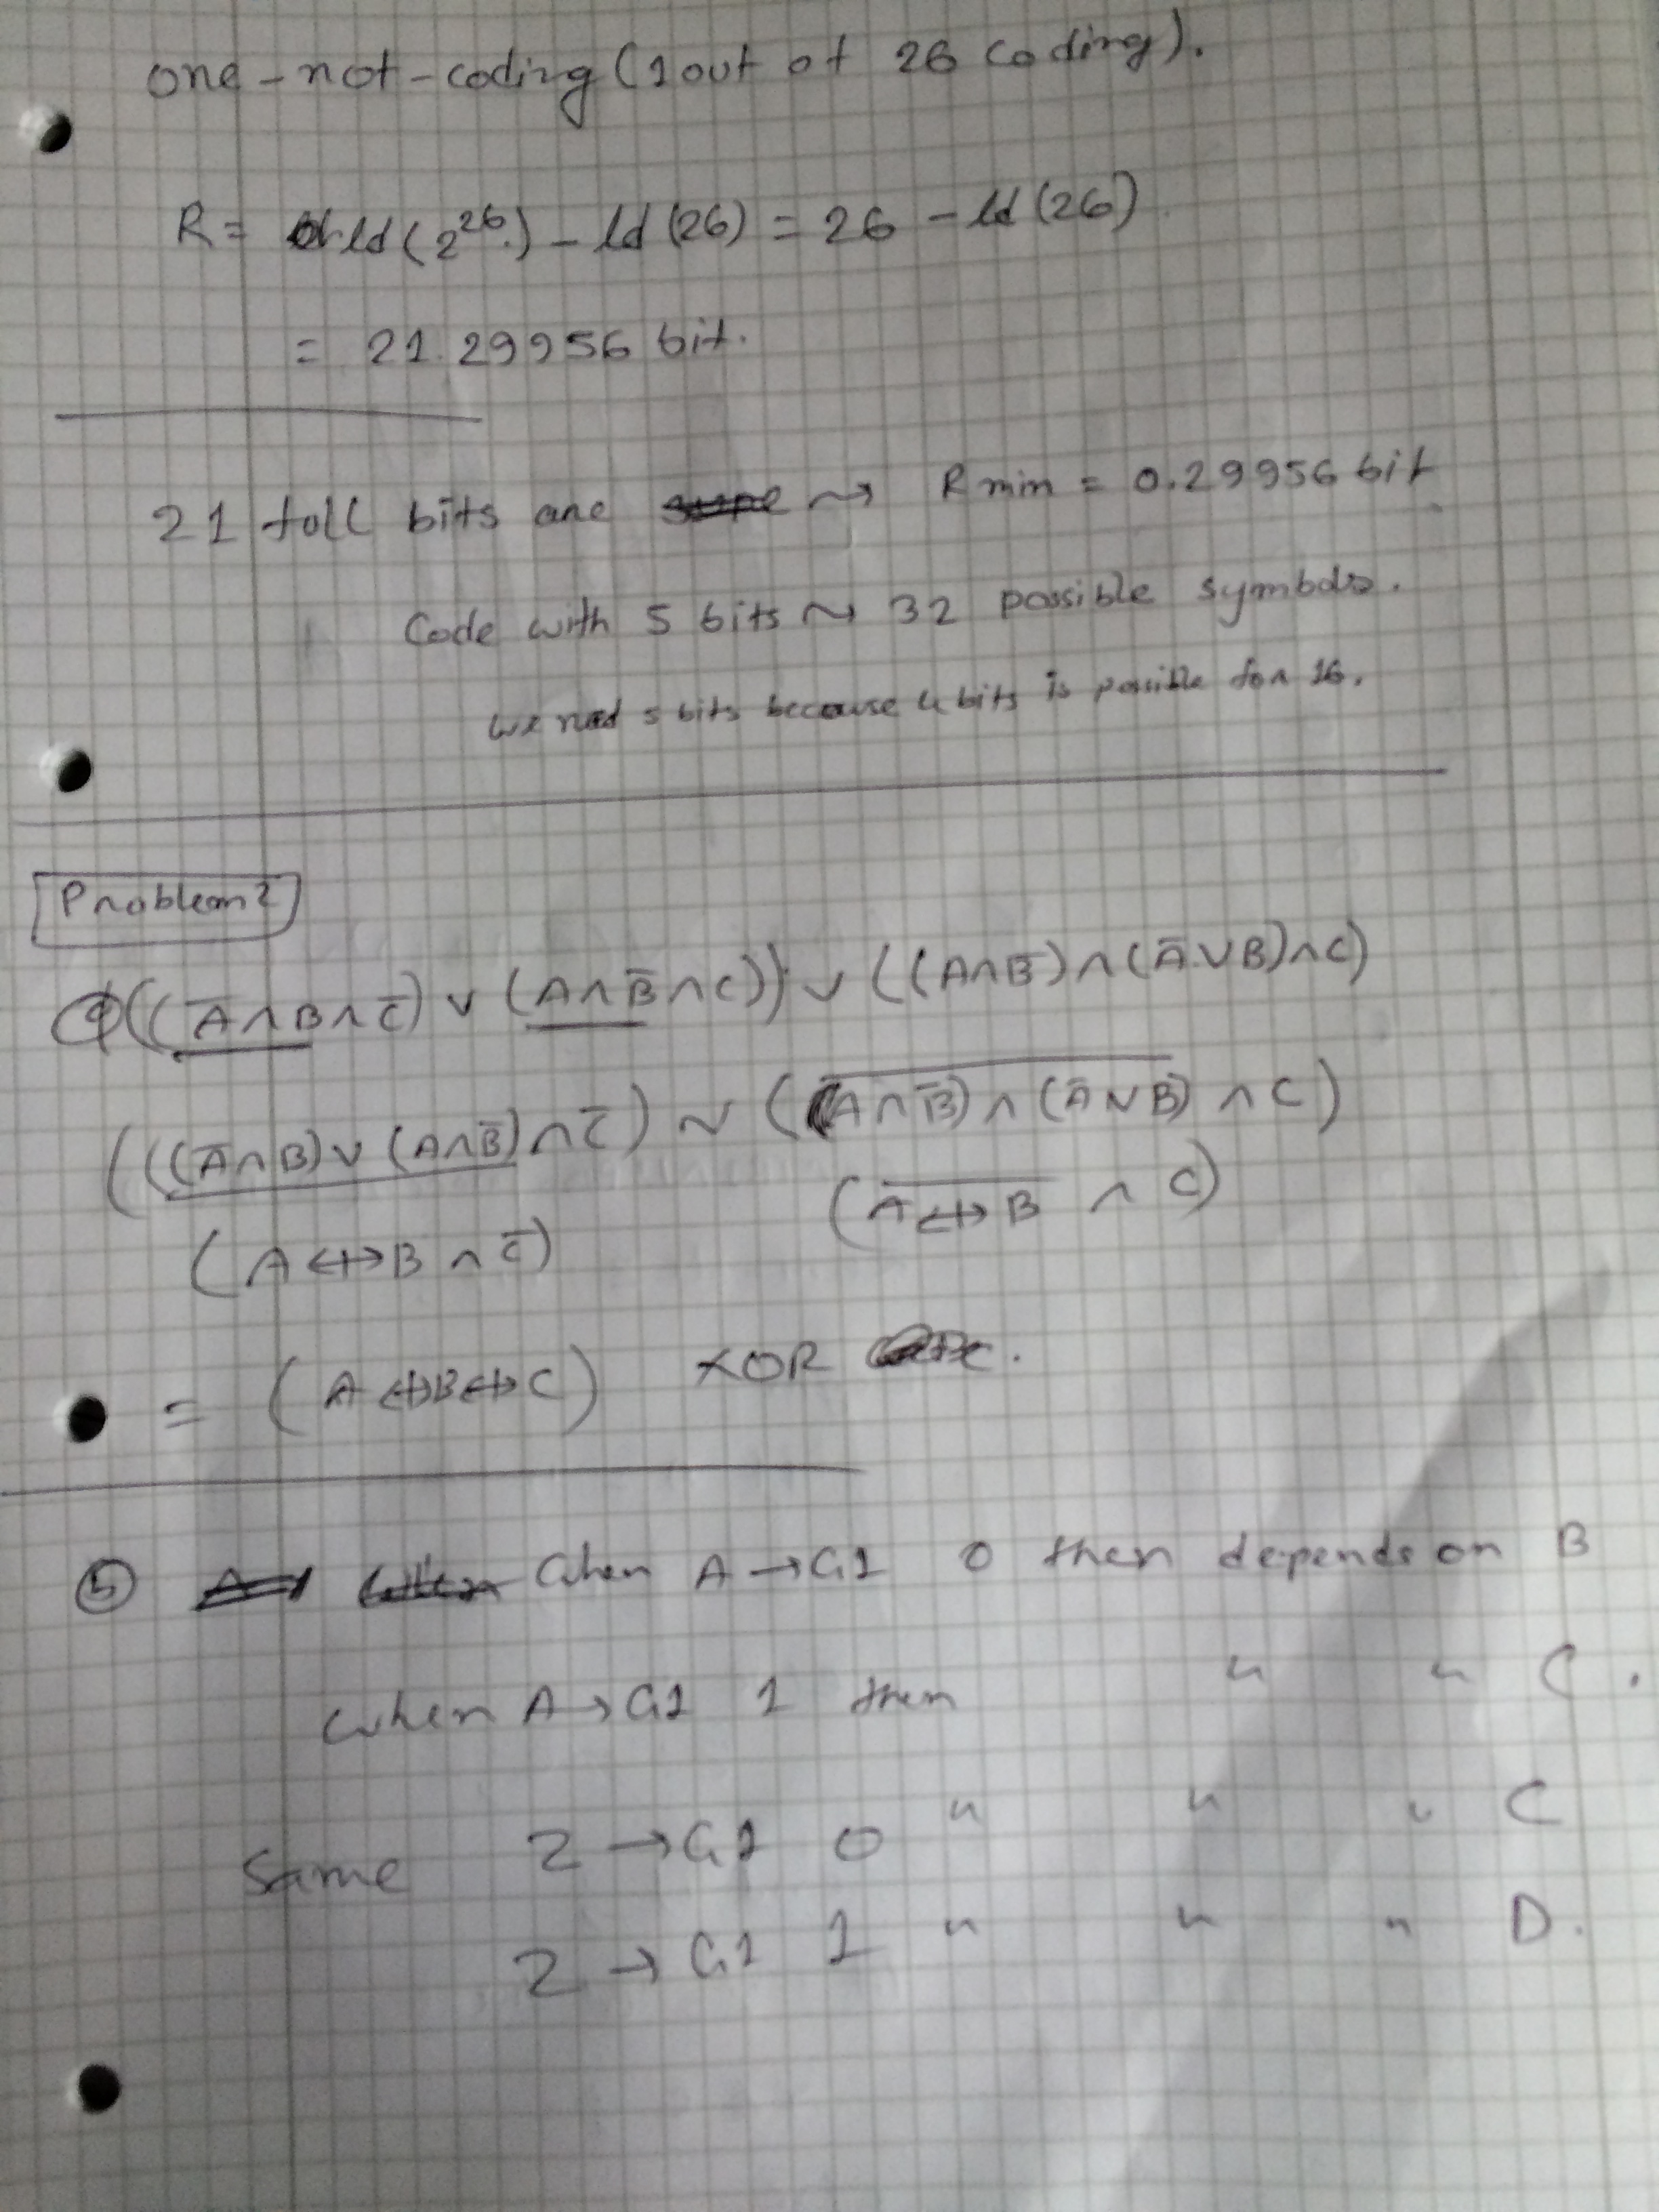 one-not-coding (1 out of 26 coding).
R = ld(2²⁶) - ld(26) = 26 - ld(26)
= 21.29956 bit.
21 full bits are ⇝ R min = 0.29956 bit
Code with 5 bits ⇝ 32 possible symbols.
we need 5 bits because 4 bits is possible for 16.
Problem 2
((A̅∧B∧C̅) ∨ (A∧B̅∧C)) ∨ ((A∧B̅)∧(A̅∨B)∧C)
(((A̅∧B)∨(A∧B̅)∧C̅) ∨ (A∧B̅)∧(A̅∨B)∧C)
(A↮B∧C̅) (A↮B ∧ C)
= (A↮B↮C) XOR
⑤ When A→G1 0 then depends on B
when A→G1 1 then " " C.
Same Z→G1 0 " " " C
Z→G1 1 " " " D.